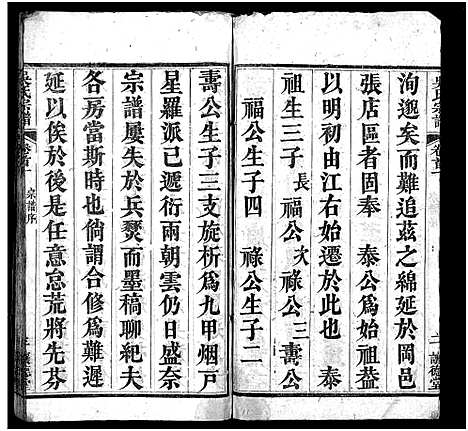 吳氏宗譜
卷首一
洵邈矣而難追茲之綿延於岡邑
張店區者固奉 泰公爲始祖蓋
以明初由江右始遷於此也
祖生子三 長福公 次祿公 三壽公
福公生子四 祿公生子二
壽公生子一三支旋析爲九甲烟戸
星羅派已遞衍兩朝雲仍日盛奈
宗譜屢失於兵燹而墨稿聊紀夫
各房當斯時也倘謂合修爲難遲
延以俟於後是任意怠荒將先芬
吳氏宗譜
卷首一
宗譜序
三 讓德堂